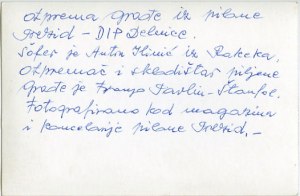 otprema građe iz pilane
Prezid - DIP Delnice.
Šofer je Antun Klinić iz Rakeka.
Otpremač i skladištar piljene
građe je Franjo Pavlin-Štanfel.
Fotografirano kod magazina
i kancelarije pilane Prezid.-